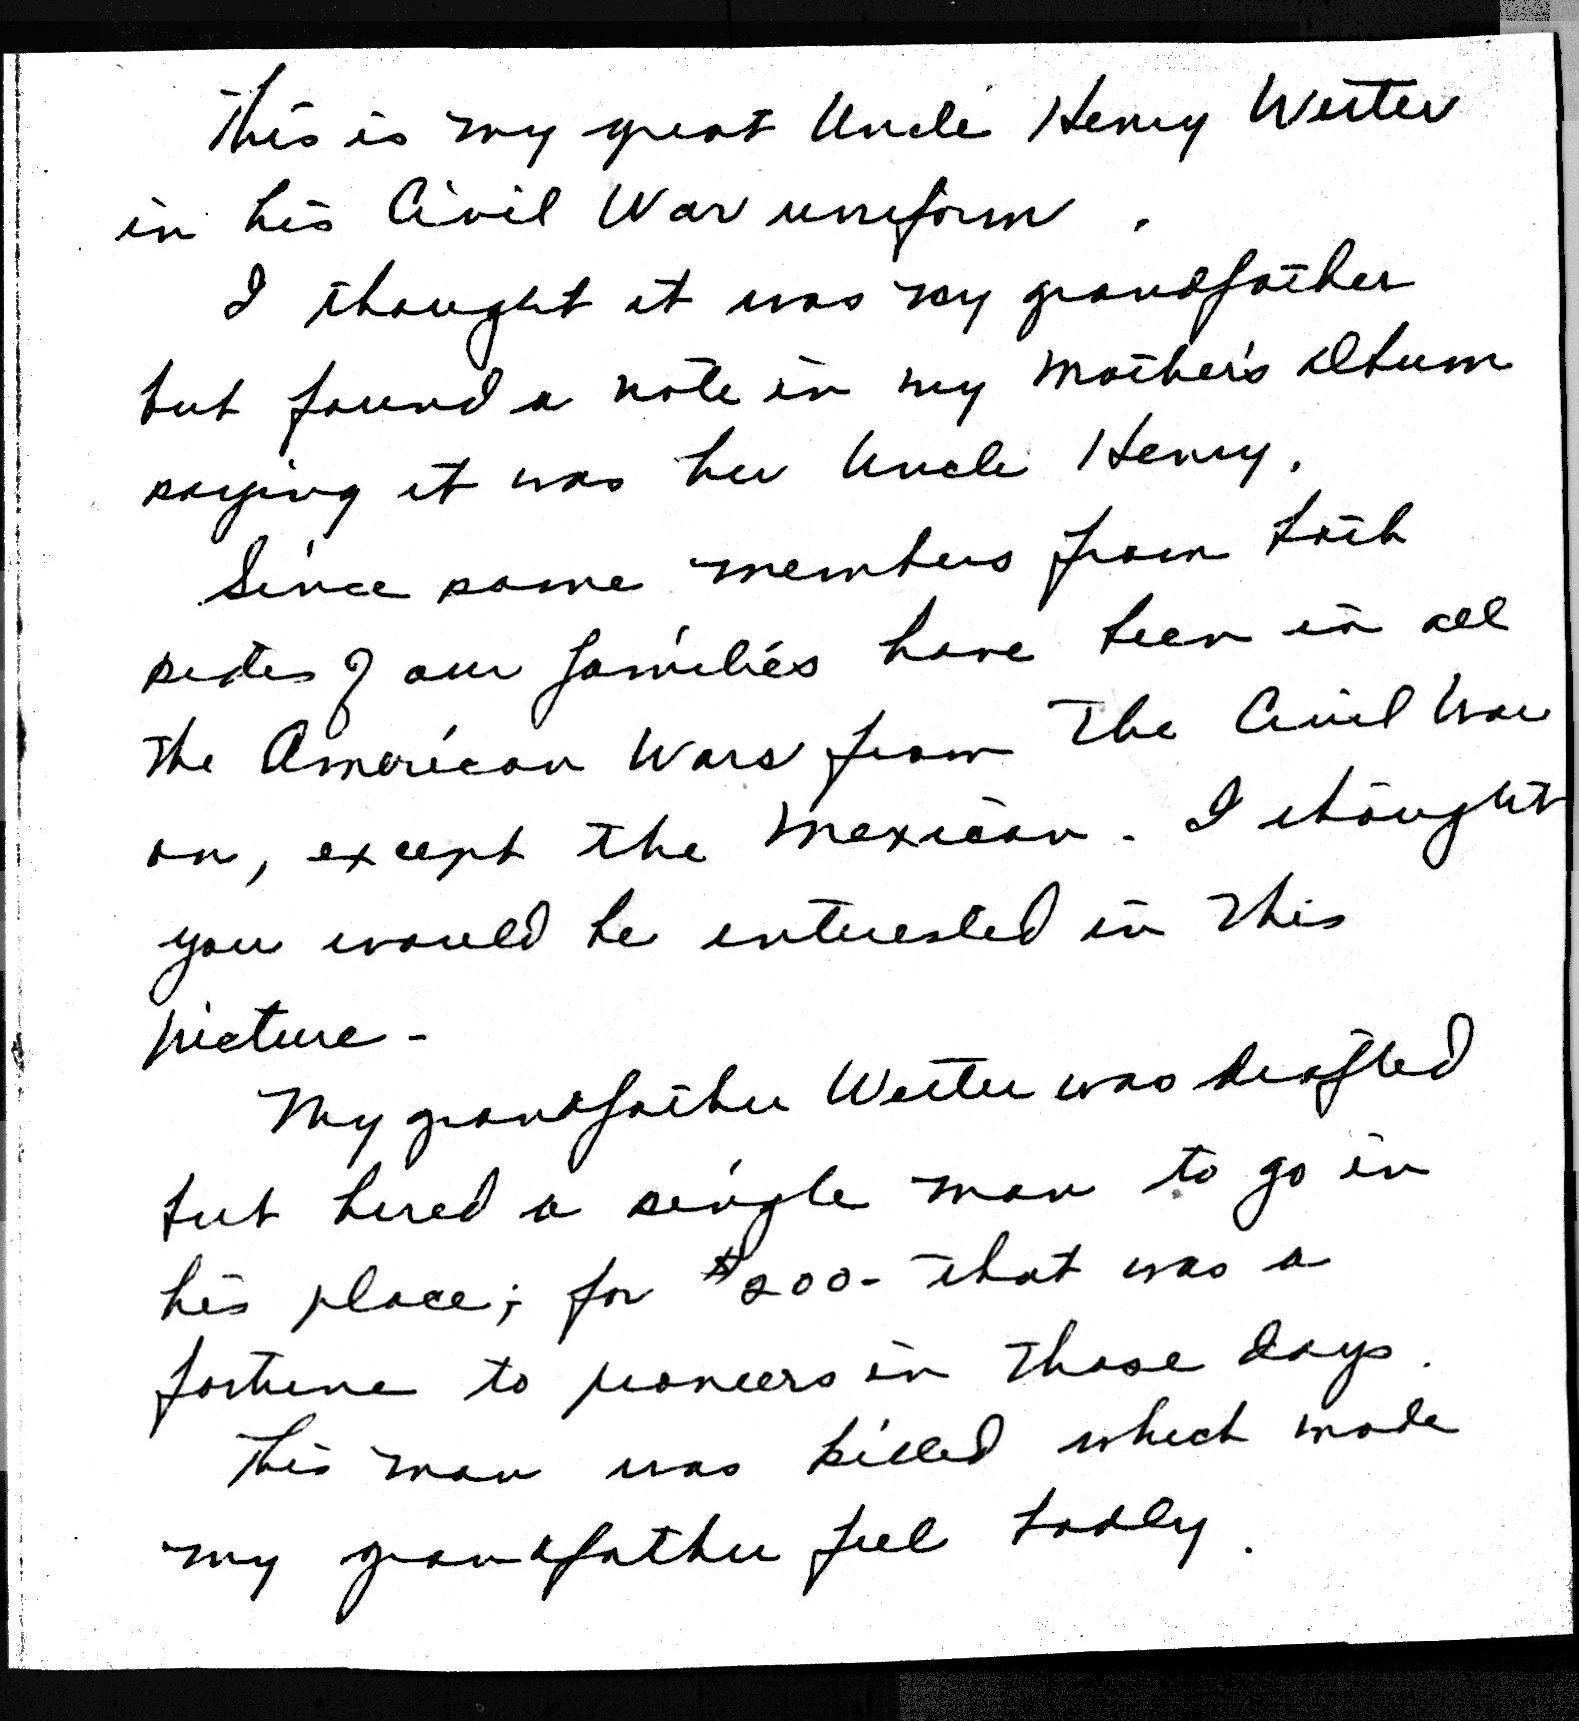 This is my great Uncle Henry Wester
in his Civil War uniform.
I thought it was my grandfather
but found a note in my Mother's album
saying it was her Uncle Henry.
Since some members from both
sides of our families have been in all
the American Wars from the Civil War
on, except the Mexican. I thought
you would be interested in this
picture -
My grandfather Wester was drafted
but hired a single man to go in
his place; for $200 - that was a
fortune to pioneers in those days.
This man was killed which made
my grandfather feel badly.